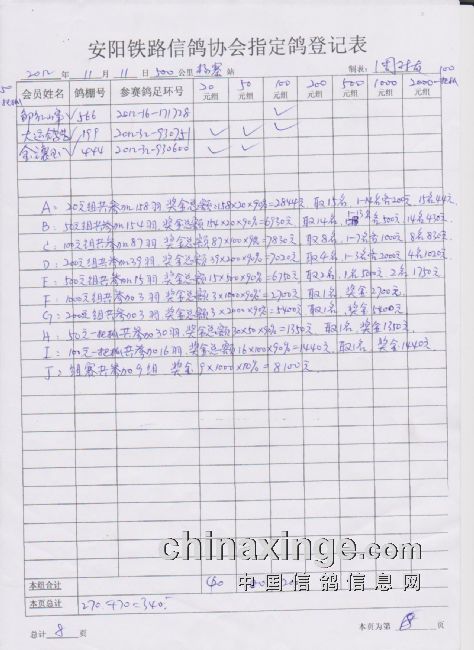 安阳铁路信鸽协会指定鸽登记表
2012年 11月 11日 500公里 站 制表:
会员姓名 鸽棚号 参赛鸽足环号 20元组 50元组 100元组 200元组 500元组 1000元组 2000元组 100
566 2012-16-171728 ✓
199 2012-32-930751 ✓ ✓
444 2012-32-930600 ✓ ✓
A: 20元组共参加158羽 奖金总额:158×20×90%=2844元, 取15名, 1-14名各200元, 15名44元
B: 50元组共参加154羽 奖金总额154×50×90%=6930元 取14名 1-13名各500元, 14名430元
C: 100元组共参加87羽 奖金总额87×100×90%=7830元 取8名 1-7名各1000元 8名830元
D: 200元组共参加39羽 奖金总额39×200×90%=7020元 取4名 1-3名各2000元 4名1020元
E: 500元组共参加15羽 奖金总额15×500×90%=6750元 取2名, 1名5000元 2名1750元
F: 1000元组共参加3羽 奖金总额3×1000×90%=2700元 取1名 奖金2700元
G: 2000元组共参加3羽 奖金总额3×2000×90%=5400元 取1名, 奖金5400元
H: 50元一把抓共参加30羽, 奖金总额30×50×90%=1350元 取1名 奖金1350元
I: 100元一把抓共参加16羽, 奖金总额16×100×90%=1440元, 取1名, 奖金1440元
J: 组赛共参加9组 奖金 9×1000×90%=8100元
chinaxinge.com
中国信鸽信息网
本组合计
本页总计 270+70=340
总计 8 页 本页为第 8 页